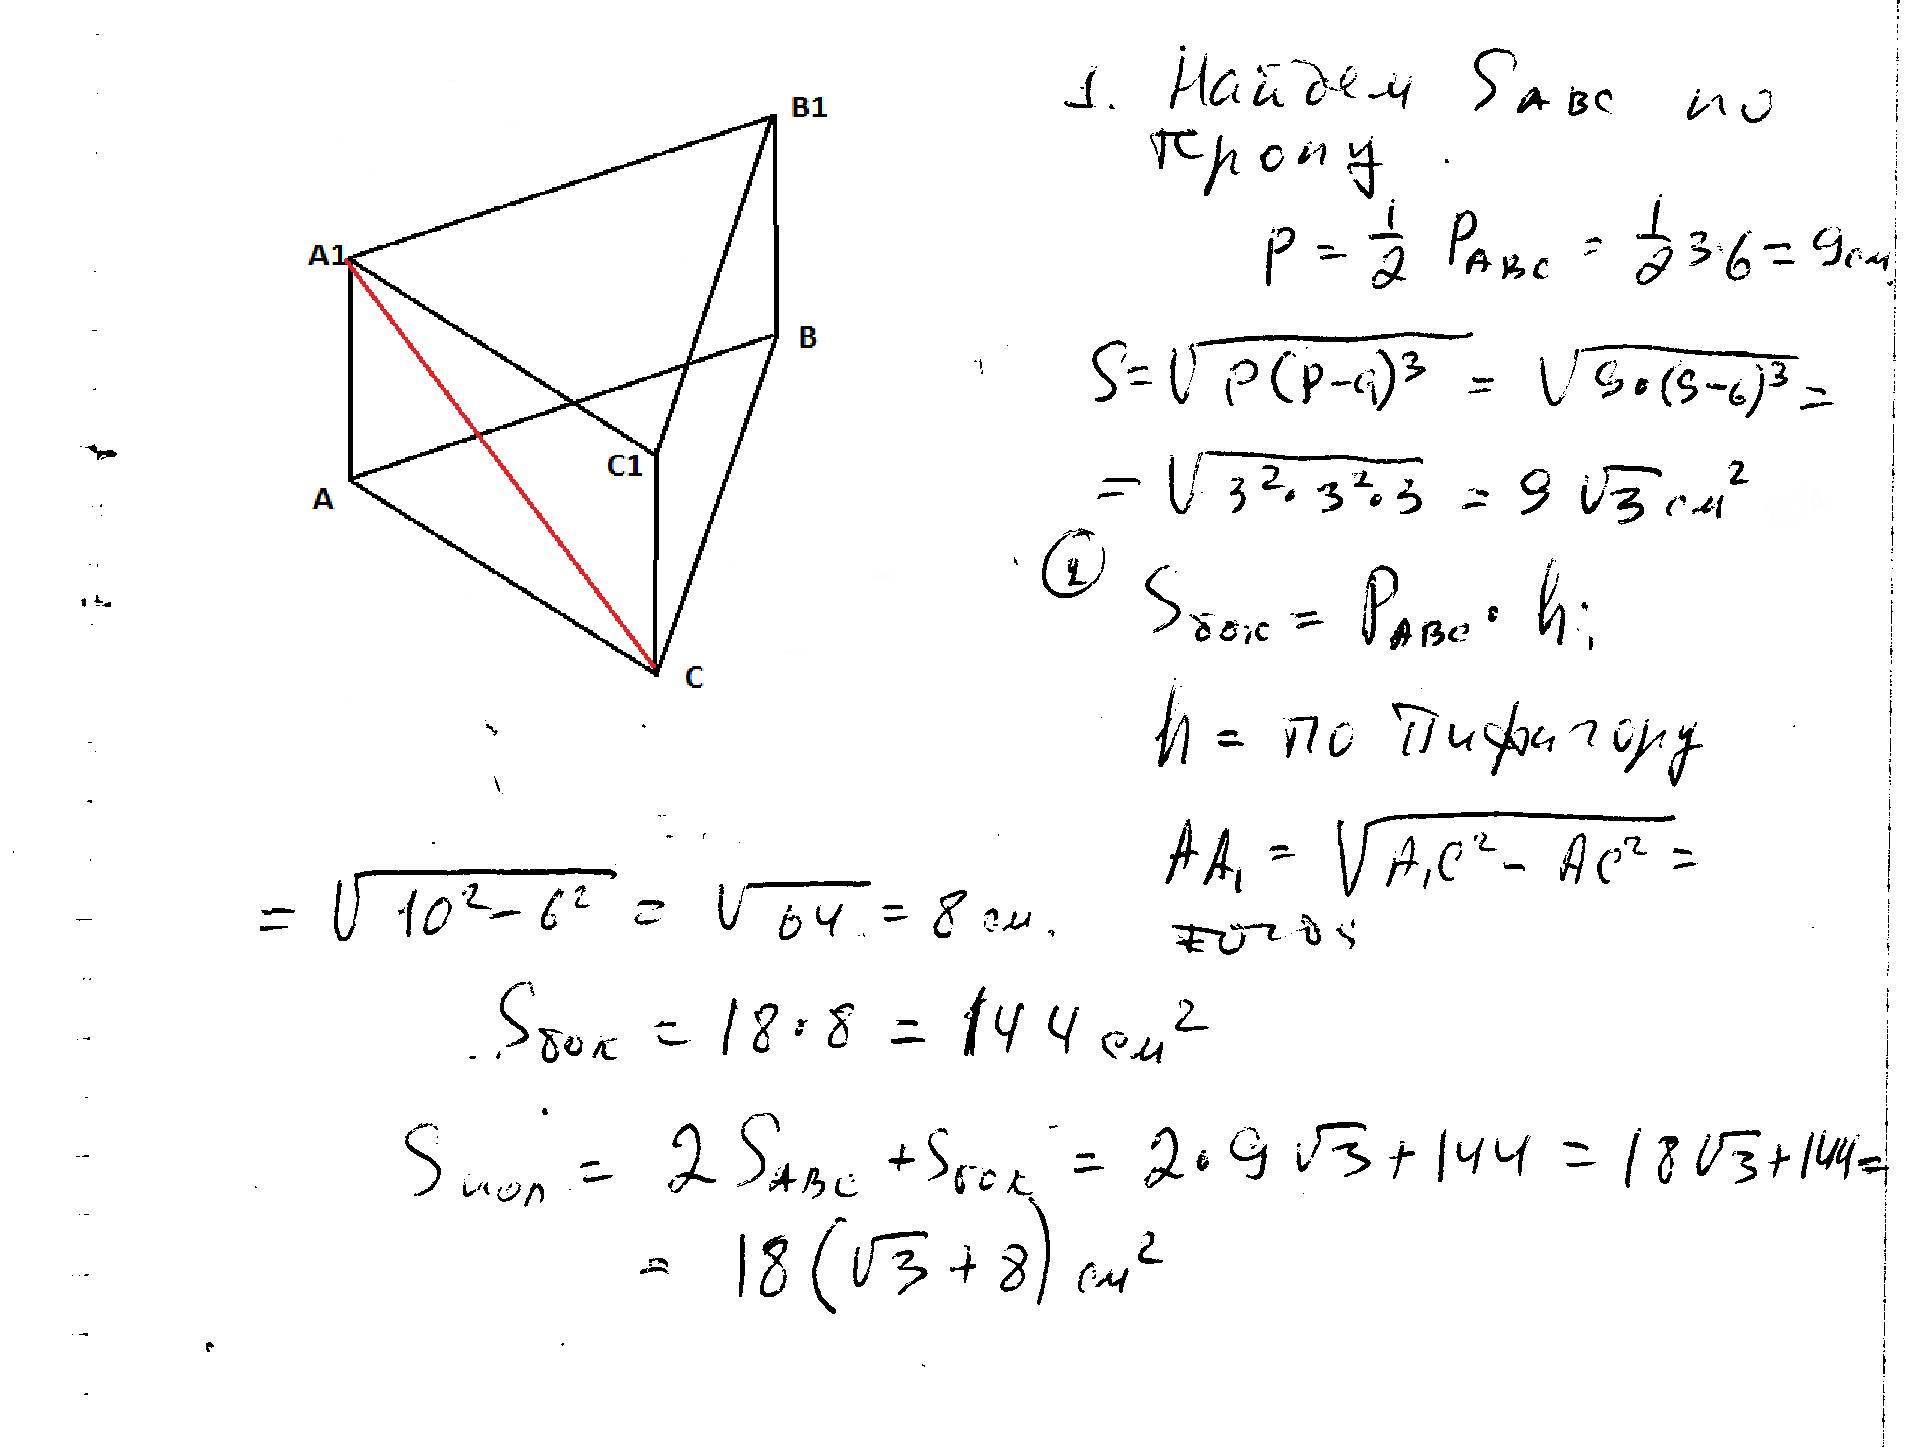 B1
A1
B
C1
A
C
1. Найдем S_ABC по
Герону.
p = 1/2 P_ABC = 1/2 3·6 = 9см
S = √(p(p-a)³) = √(9·(9-6)³) =
= √(3²·3²·3) = 9√3 см²
② S_бок = P_ABC · h;
h = по Пифагору
AA₁ = √(A₁C² - AC²) =
= √(10² - 6²) = √64 = 8 см.
S_бок = 18·8 = 144 см²
S_пол = 2 S_ABC + S_бок = 2·9√3 + 144 = 18√3 + 144 =
= 18(√3 + 8) см²